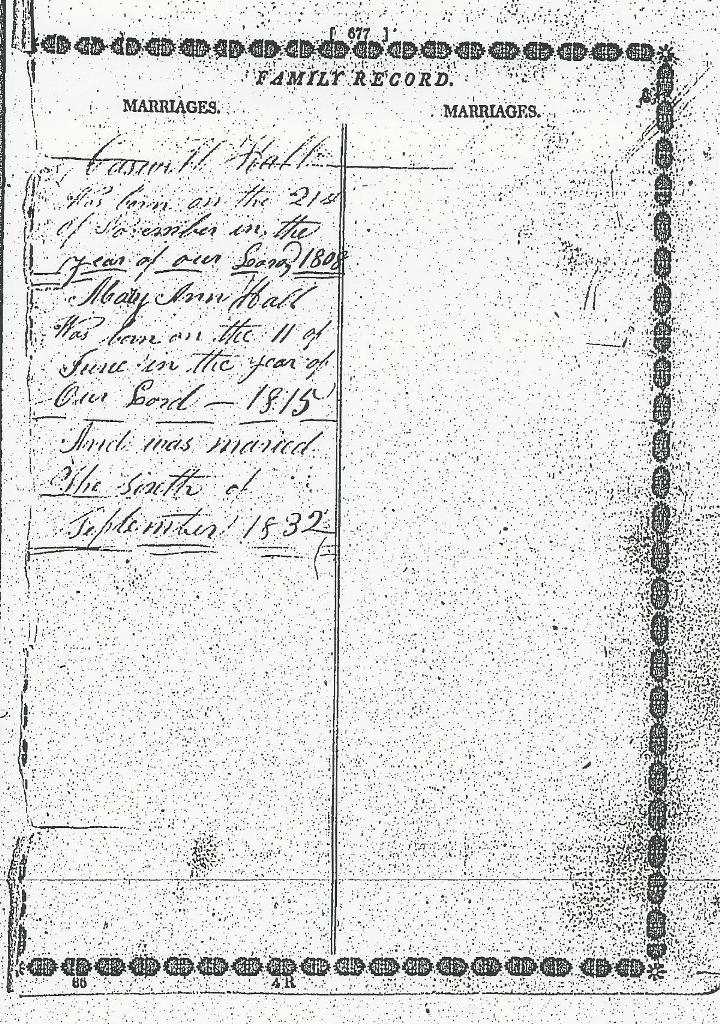 [ 677 ]
FAMILY RECORD.
MARRIAGES.
MARRIAGES.
Caswell Hall
Was born on the 21st
of November in the
year of our Lord 1808
Mary Ann Hall
Was born on the 11 of
June in the year of
Our Lord – 1815
And was maried
The sixth of
September 1832
86 4 R